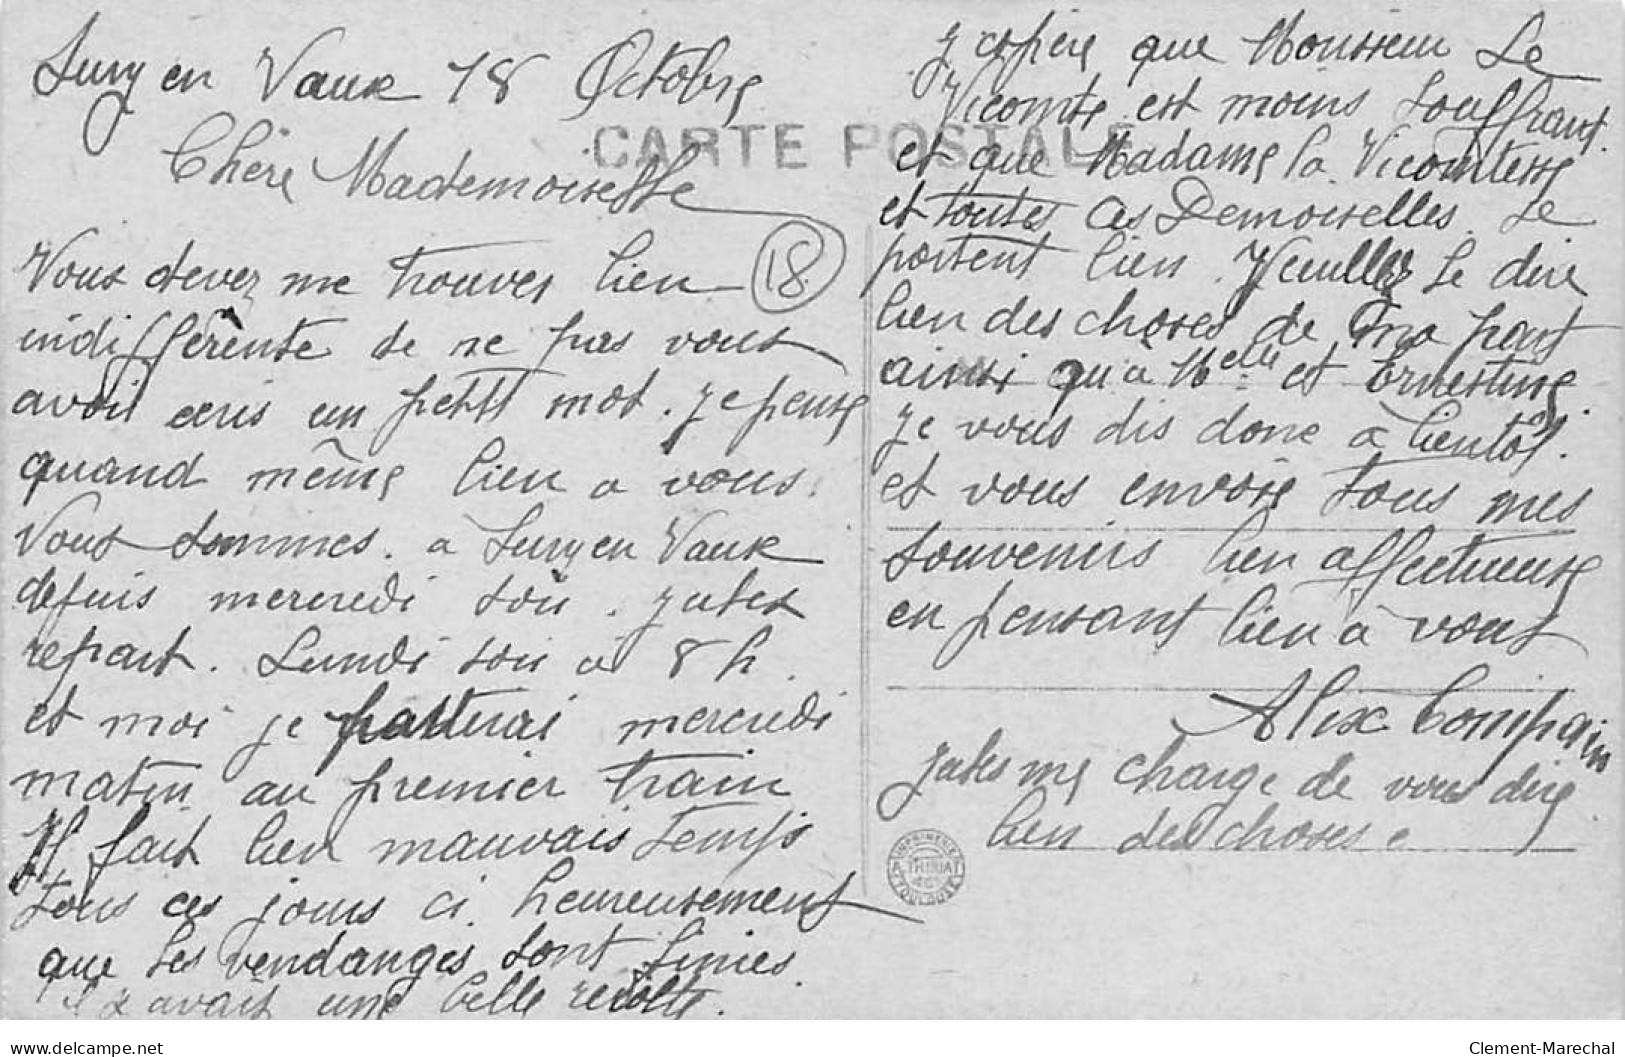 Sury en Vaux 18 Octobre
CARTE POSTALE
Chère Mademoiselle
18
Vous devez me trouver bien
indifférente de ne pas vous
avoir ecris un petit mot. Je pense
quand même bien a vous.
Nous sommes a Sury en Vaux
depuis mercredi soir. Jules
repart. Lundi soir à 8 h.
et moi je partirai mercredi
matin au premier train
Il fait bien mauvais temps
tous ces jours ci heureusement
que les vendanges sont finies.
il y avait une belle récolte.
J'espère que Monsieur Le
Vicomte est moins souffrant.
et que Madame la Vicomtesse
et toutes ces Demoiselles se
portent bien. Veuillez le dire
bien des choses de ma part
ainsi qu'à Melle et Ernestine
Je vous dis donc à bientôt.
et vous envoie tous mes
souvenirs bien affectueuse
en pensant bien à vous
Alix Compain
Jules me charge de vous dire
bien des choses
IMPRIMERIES THIRIAT &CIE TOULOUSE
delcampe.net
Clement-Marechal